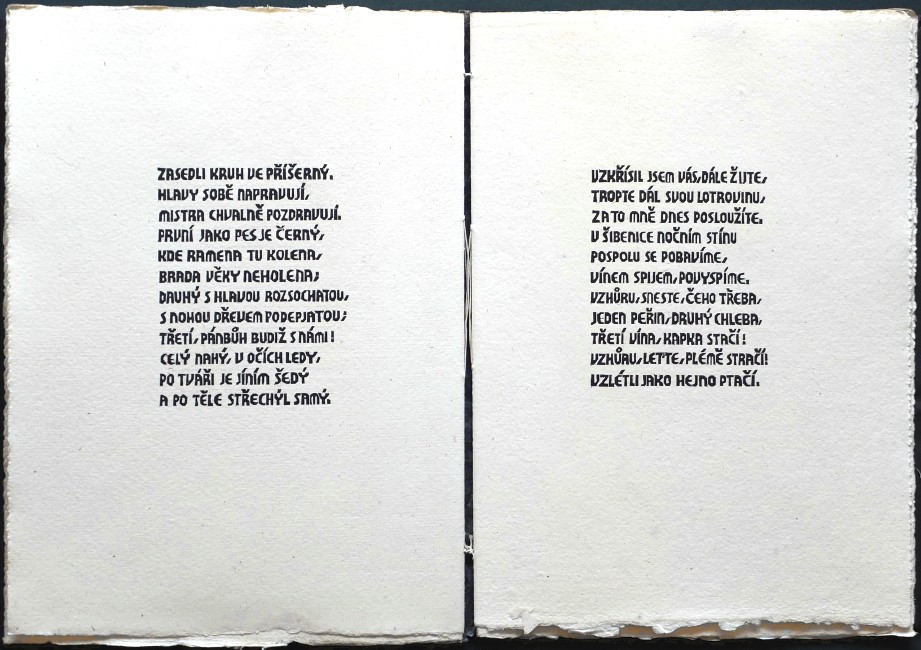 ZASEDLI KRUH VE PŘÍŠERNÝ.
HLAVY SOBĚ NAPRAVUJÍ,
MISTRA CHVALNĚ POZDRAVUJÍ.
PRVNÍ JAKO PES JE ČERNÝ,
KDE RAMENA TU KOLENA,
BRADA VĚKY NEHOLENA;
DRUHÝ S HLAVOU ROZSOCHATOU,
S NOHOU DŘEVEM PODEPJATOU;
TŘETÍ, PÁNBŮH BUDIŽ S NÁMI!
CELÝ NAHÝ, V OČÍCH LEDY,
PO TVÁŘI JE JÍNÍM ŠEDÝ
A PO TĚLE STŘECHÝL SAMÝ.
VZKŘÍSIL JSEM VÁS, DÁLE ŽIJTE,
TROPTE DÁL SVOU LOTROVINU,
ZA TO MNĚ DNES POSLOUŽÍTE.
V ŠIBENICE NOČNÍM STÍNU
POSPOLU SE POBAVÍME,
VÍNEM SPIJEM, POVYSPÍME.
VZHŮRU, SNESTE, ČEHO TŘEBA,
JEDEN PEŘIN, DRUHÝ CHLEBA,
TŘETÍ VÍNA, KAPKA STAČÍ!
VZHŮRU, LEŤTE, PLÉMĚ STRAČÍ!
VZLÉTLI JAKO HEJNO PTAČÍ.